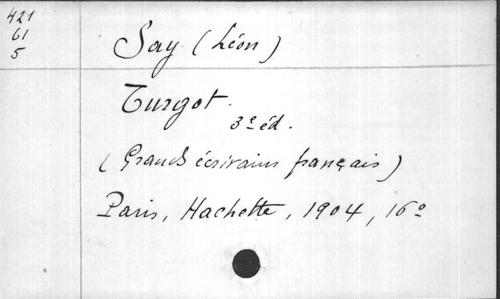 421
61
5
Say (Léon)
Turgot.
3e éd.
(Grands écrivains français)
Paris, Hachette, 1904, 16o